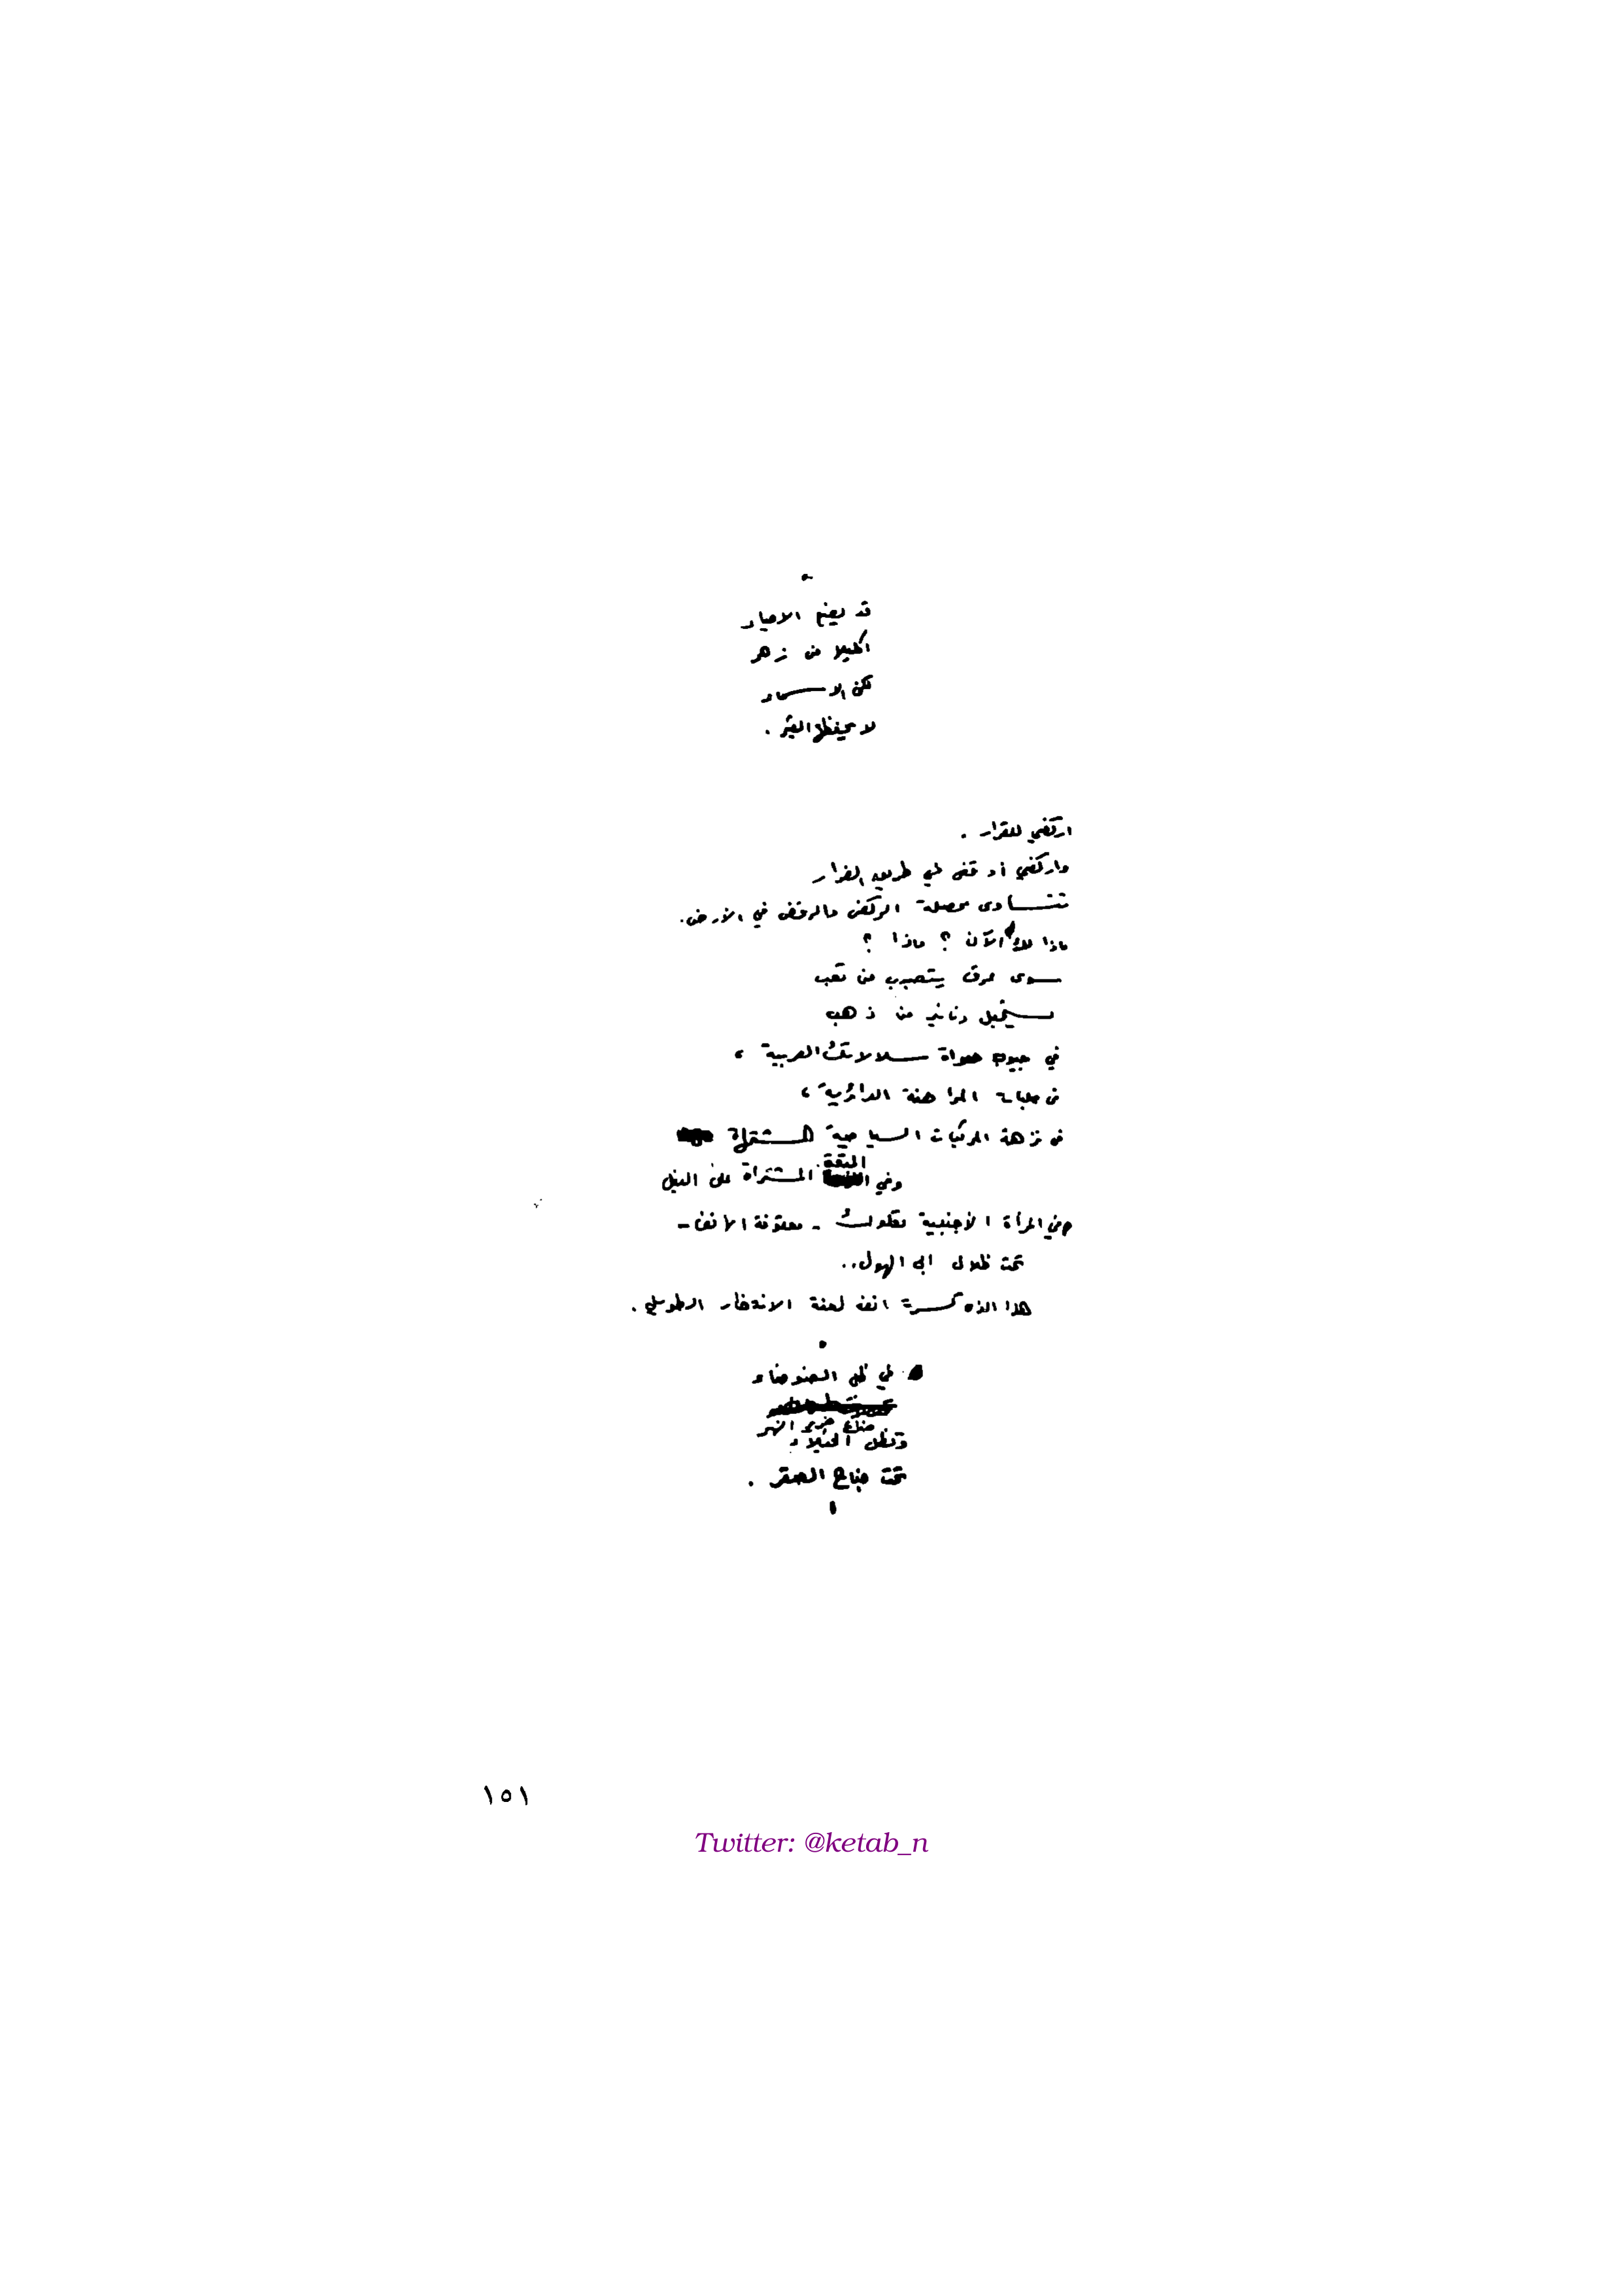 قد يضم الاحياء
اكليلا من زهر
لكن الاسماء
لا يحفظها
اركضي للقرار .
واركضي أو قفي في طريق الفرار
تتساوى محصلة الركض والرفض في الأرض.
ماذا لك الآن ؟ ماذا ؟
سوى عرق يتصبب من تعب
يستحيل دنانير من ذهب
في جيوب هواة سلالاتك العربية ،
في حلبات المراهنة الدائرية ،
في نزهة المركبات السياحية المشتهاة
المتعة
وفي المشتراة على النيل
وفي المرأة الأجنبية تعلوك - معقوفة الأنف -
تحت ظلال ابى الهول..
هذا الذى كسرت انفه لعنة الانتظار الطويل .
في ظل الضوضاء
ضاع خرير النهر
وتظل
تحت جناح الصقر .
١٥١
Twitter: @ketab_n